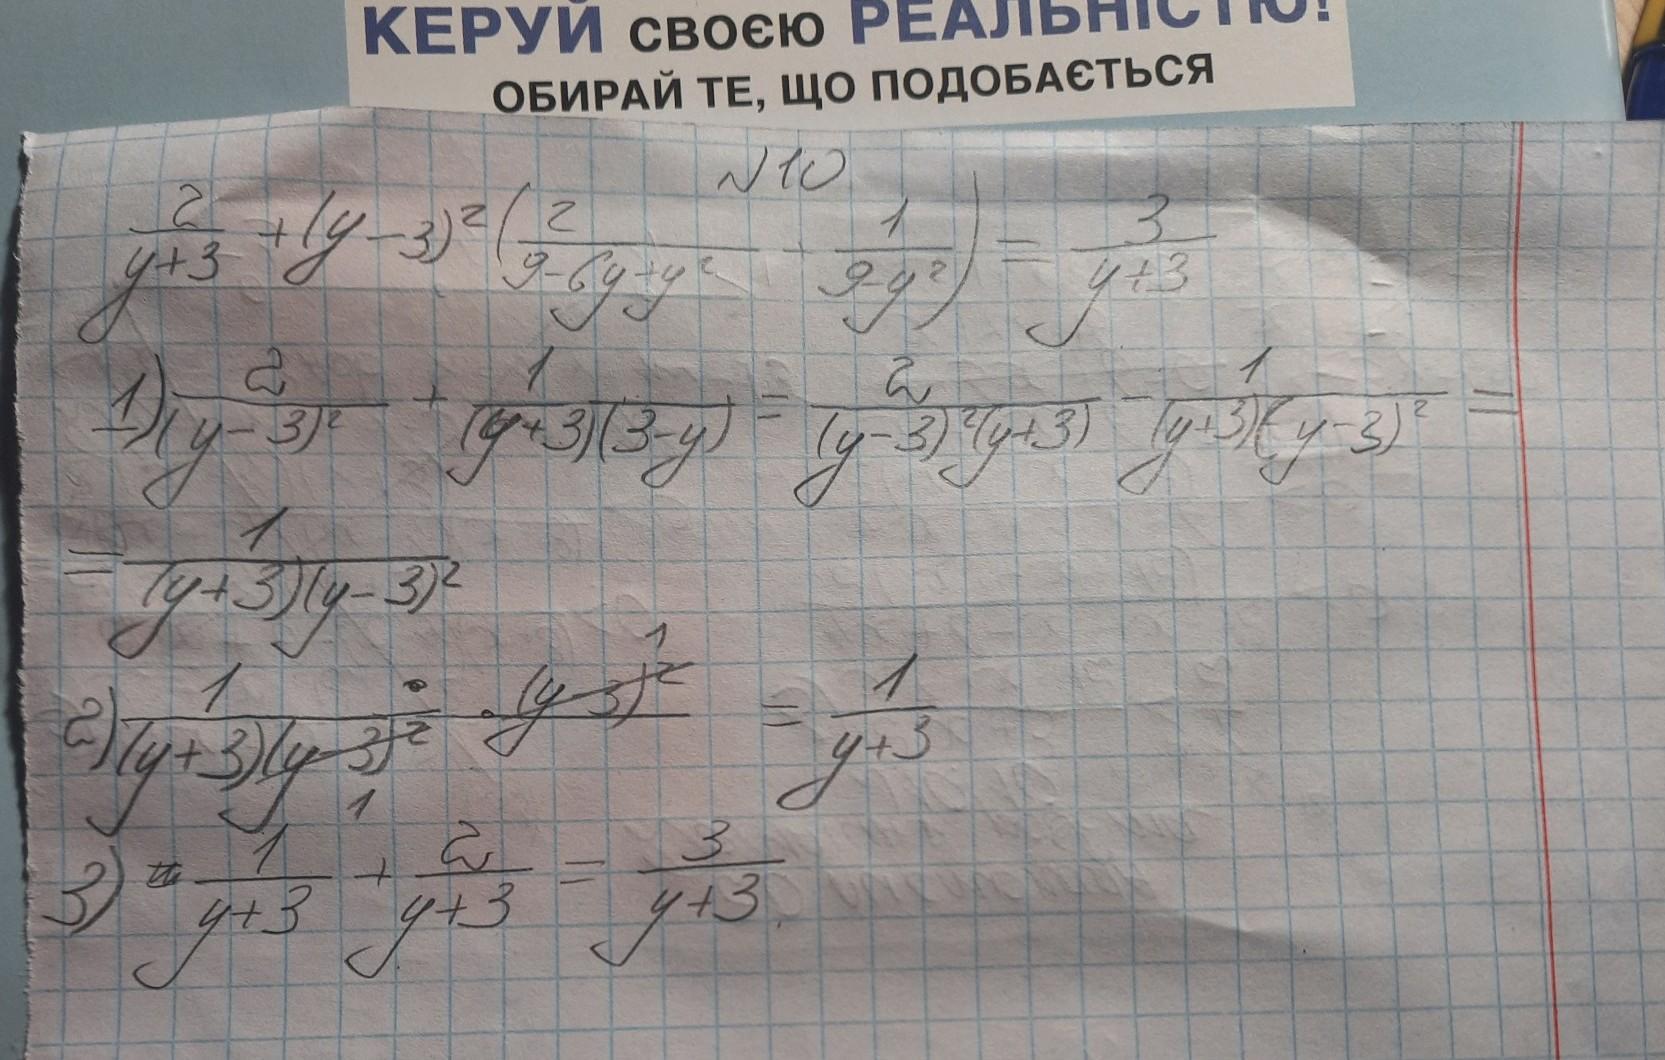 КЕРУЙ СВОЄЮ РЕАЛЬНІСТЮ!
ОБИРАЙ ТЕ, ЩО ПОДОБАЄТЬСЯ
№10
2/(y+3) + (y-3)² (2/(9-6y+y²) - 1/(9-y²)) = 3/(y+3)
1) 2/(y-3)² + 1/((y+3)(3-y)) = 2/((y-3)²(y+3)) - 1/((y+3)(y-3)²) =
= 1/((y+3)(y-3)²)
2) 1/((y+3)(y-3)²) · (y-3)² = 1/(y+3)
3) 1/(y+3) + 2/(y+3) = 3/(y+3)